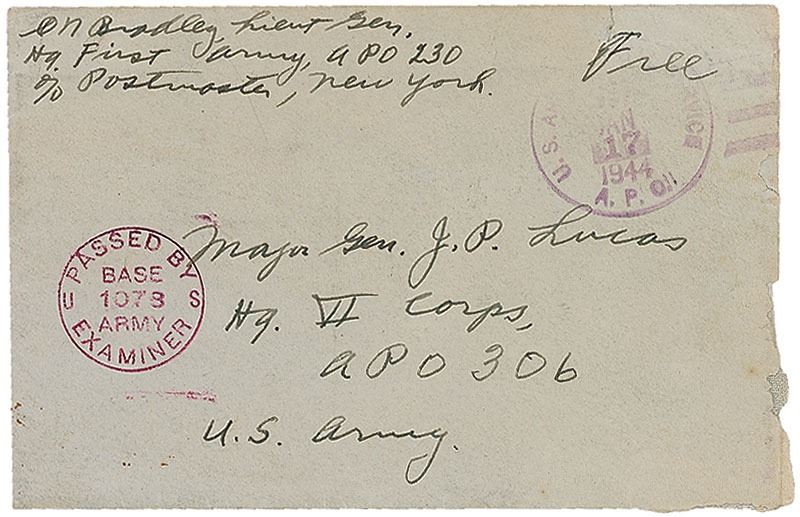 O N Bradley Lieut Gen.
Hq. First Army, APO 230
c/o Postmaster, New York.
Free
U.S. A
17
1944
A. P. O.
Major Gen. J. P. Lucas
Hq. VI Corps,
APO 306
U.S. Army.
PASSED BY
BASE
U 1073 S
ARMY
EXAMINER